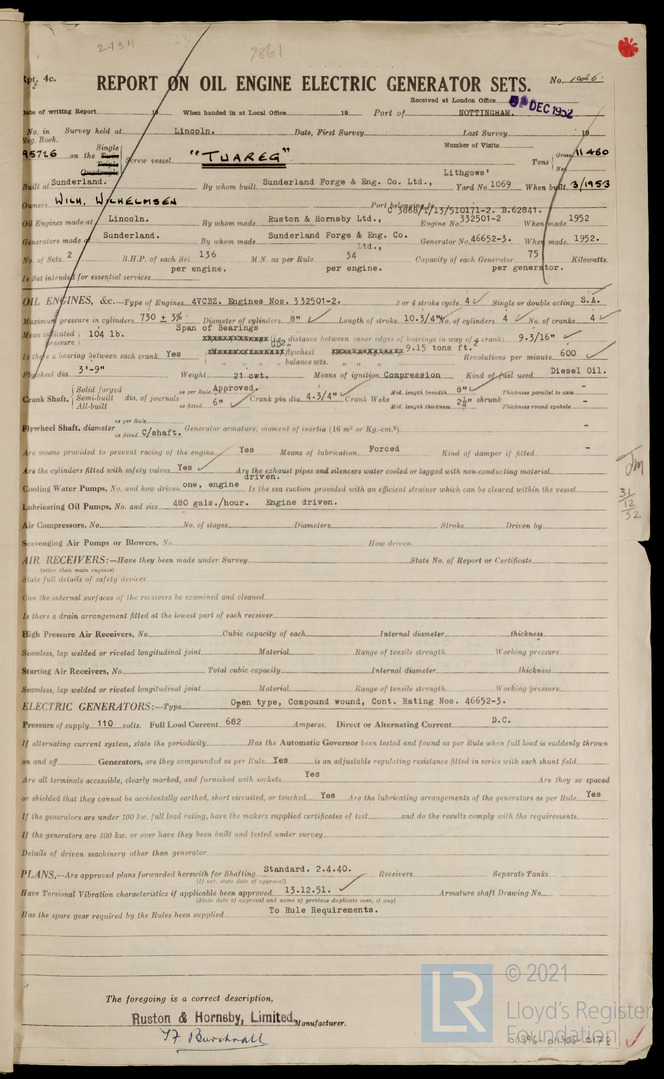 2434
7861
Rpt. 4c.
REPORT ON OIL ENGINE ELECTRIC GENERATOR SETS.
No.
Received at London Office
DEC 1952
Date of writing Report 19 When handed in at Local Office 19 Port of NOTTINGHAM.
No. in Survey held at Lincoln. Date, First Survey Last Survey 19
Reg. Book.
Number of Visits
95726 on the Single Twin Triple Quadruple Screw vessel "TUAREG" Tons Gross 11460 Net
Lithgows'
Built at Sunderland. By whom built Sunderland Forge & Eng. Co. Ltd., Yard No. 1069 When built 3/1953
Owners WILH. WILHELMSEN Port belonging to
C 3868/1/13/510171-2. B.62841.
Oil Engines made at Lincoln. By whom made Ruston & Hornsby Ltd., Engine No. 332501-2 When made 1952
Generators made at Sunderland. By whom made Sunderland Forge & Eng. Co. Ltd., Generator No. 46652-3. When made 1952.
No. of Sets 2 B.H.P. of each Set 136 M.N. as per Rule 34 Capacity of each Generator 75 Kilowatts.
per engine. per engine. per generator.
Is Set intended for essential services
OIL ENGINES, &c.—Type of Engines 4VCBZ. Engines Nos. 332501-2. 2 or 4 stroke cycle 4 Single or double acting S.A.
Maximum pressure in cylinders 730 ± 3% Diameter of cylinders 8" Length of stroke 10.3/4" No. of cylinders 4 No. of cranks 4
Mean indicated pressure 104 lb. Span of Bearings (i.e. distance between inner edges of bearings in way of a crank) 9.3/16"
Is there a bearing between each crank Yes GD² flywheel 9.15 tons ft.² Revolutions per minute 600
" " " balance wts.
Flywheel dia. 3'-9" Weight 21 cwt. Means of ignition Compression Kind of fuel used Diesel Oil.
Crank Shaft, Solid forged Semi-built All-built dia. of journals as per Rule Approved. as fitted 6" Crank pin dia. 4.3/4" Crank Webs Mid. length breadth 8" Mid. length thickness 2½" shrunk Thickness parallel to axis - Thickness round eyehole -
Flywheel Shaft, diameter as per Rule as fitted C/shaft. Generator armature, moment of inertia (16 m² or Kg.-cm.²) -
Are means provided to prevent racing of the engine Yes Means of lubrication Forced Kind of damper if fitted -
Are the cylinders fitted with safety valves Yes Are the exhaust pipes and silencers water cooled or lagged with non-conducting material
Cooling Water Pumps, No. and how driven one, engine driven. Is the sea suction provided with an efficient strainer which can be cleared within the vessel
Lubricating Oil Pumps, No. and size 480 gals./hour. Engine driven.
31
12
52
Air Compressors, No. No. of stages Diameters Stroke Driven by
Scavenging Air Pumps or Blowers, No. How driven
AIR RECEIVERS:—Have they been made under Survey State No. of Report or Certificate
(other than main engines)
State full details of safety devices
Can the internal surfaces of the receivers be examined and cleaned
Is there a drain arrangement fitted at the lowest part of each receiver
High Pressure Air Receivers, No. Cubic capacity of each Internal diameter thickness
Seamless, lap welded or riveted longitudinal joint Material Range of tensile strength Working pressure
Starting Air Receivers, No. Total cubic capacity Internal diameter thickness
Seamless, lap welded or riveted longitudinal joint Material Range of tensile strength Working pressure
ELECTRIC GENERATORS:—Type Open type, Compound wound, Cont. Rating Nos. 46652-3.
Pressure of supply 110 volts. Full Load Current 682 Amperes. Direct or Alternating Current D.C.
If alternating current system, state the periodicity Has the Automatic Governor been tested and found as per Rule when full load is suddenly thrown
on and off Generators, are they compounded as per Rule Yes is an adjustable regulating resistance fitted in series with each shunt field
Are all terminals accessible, clearly marked, and furnished with sockets Yes Are they so spaced
or shielded that they cannot be accidentally earthed, short circuited, or touched Yes Are the lubricating arrangements of the generators as per Rule Yes
If the generators are under 100 kw. full load rating, have the makers supplied certificates of test and do the results comply with the requirements
If the generators are 100 kw. or over have they been built and tested under survey
Details of driven machinery other than generator
PLANS.—Are approved plans forwarded herewith for Shafting Standard. 2.4.40. Receivers Separate Tanks
(If not, state date of approval)
Have Torsional Vibration characteristics if applicable been approved 13.12.51. Armature shaft Drawing No.
(State date of approval and name of previous duplicate case, if any)
Has the spare gear required by the Rules been supplied To Rule Requirements.
The foregoing is a correct description,
Ruston & Hornsby, Limited, Manufacturer.
LR
© 2021
Lloyd's Register
Foundation